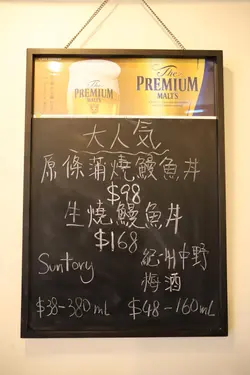 The
PREMIUM
MALT'S
The
PREMIUM
MALT'S
大人気
原條蒲燒鰻魚丼
$98
生燒鰻魚丼
$168
Suntory
$38-380mL
紀州中野
梅酒
$48-160mL